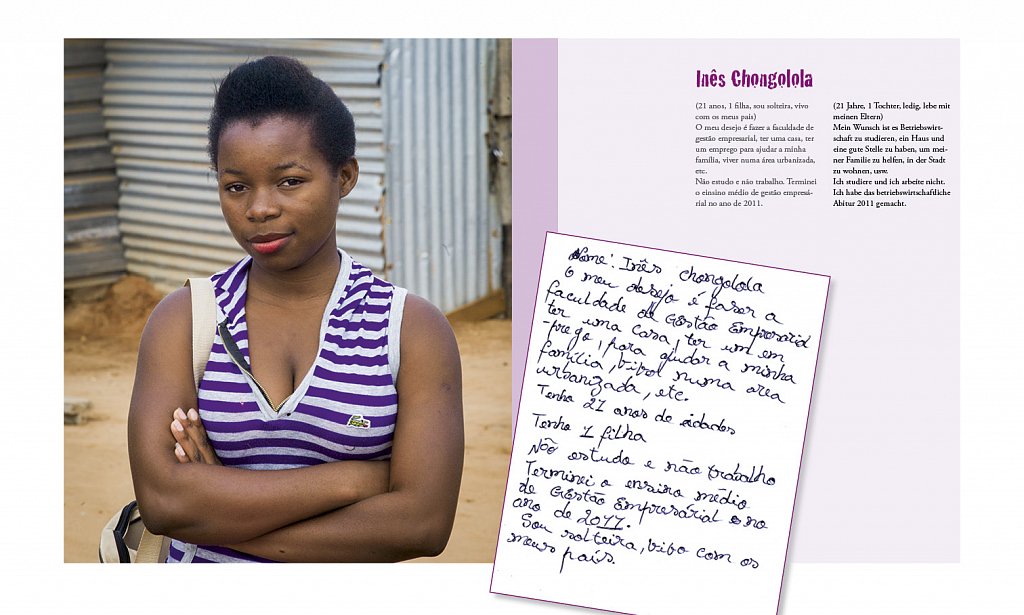 Inês Chongolola
(21 anos, 1 filha, sou solteira, vivo
com os meus pais)
O meu desejo é fazer a faculdade de
gestão empresarial, ter uma casa, ter
um emprego para ajudar a minha
família, viver numa área urbanizada,
etc.
Não estudo e não trabalho. Terminei
o einsino médio de gestão empresá-
rial no ano de 2011.
(21 Jahre, 1 Tochter, ledig, lebe mit
meinen Eltern)
Mein Wunsch ist es Betriebswirt-
schaft zu studieren, ein Haus und
eine gute Stelle zu haben, um mei-
ner Familie zu helfen, in der Stadt
zu wohnen, usw.
Ich studiere und ich arbeite nicht.
Ich habe das betriebswirtschaftliche
Abitur 2011 gemacht.
Nome: Inês chongolola
O meu desejo é faser a
faculdade de Gestão Empresarial
ter uma casa, ter um em
-prego, para ajudar a minha
família, bibol numa area
urbanizada, etc.
Tenho 21 anos de eidades
Tenho 1 filha
Não estudo e não trabalho
Terminei o ensino médio
de Gestão Empresárial no
ano de 2011.
Sou solteira, bibo com os
meus país.